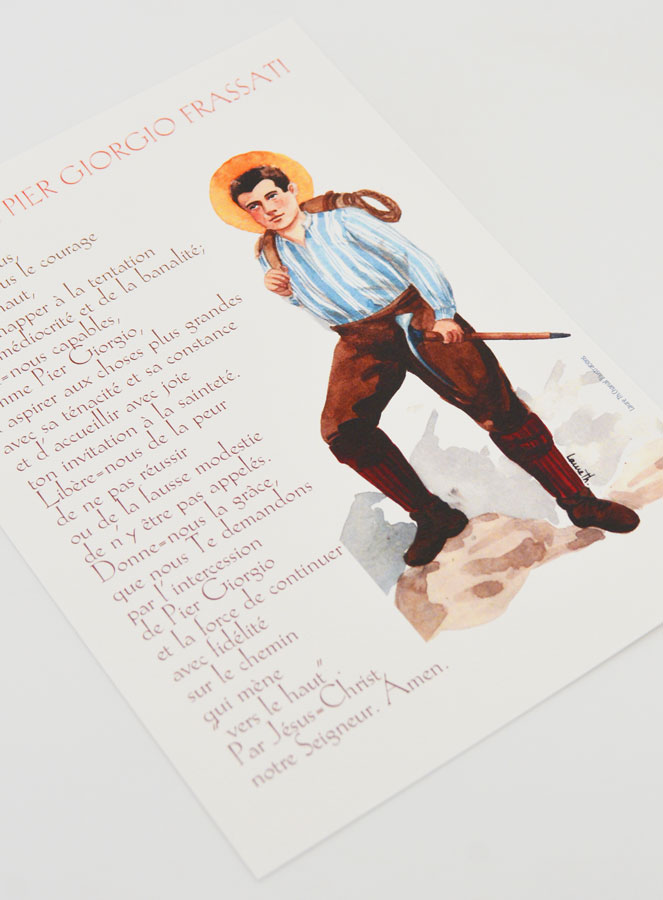 PIER GIORGIO FRASSATI
us,
us le courage
haut,
happer à la tentation
médiocrité et de la banalité;
=nous capables,
mme Pier Giorgio,
aspirer aux choses plus grandes
avec sa ténacité et sa constance
et d'accueillir avec joie
ton invitation à la sainteté.
Libère=nous de la peur
de ne pas réussir
ou de la fausse modestie
de n'y être pas appelés.
Donne=nous la grâce,
que nous Te demandons
par l'intercession
de Pier Giorgio
et la force de continuer
avec fidélité
sur le chemin
qui mène
"vers le haut".
Par Jésus=Christ
notre Seigneur. Amen.
Laure Th.